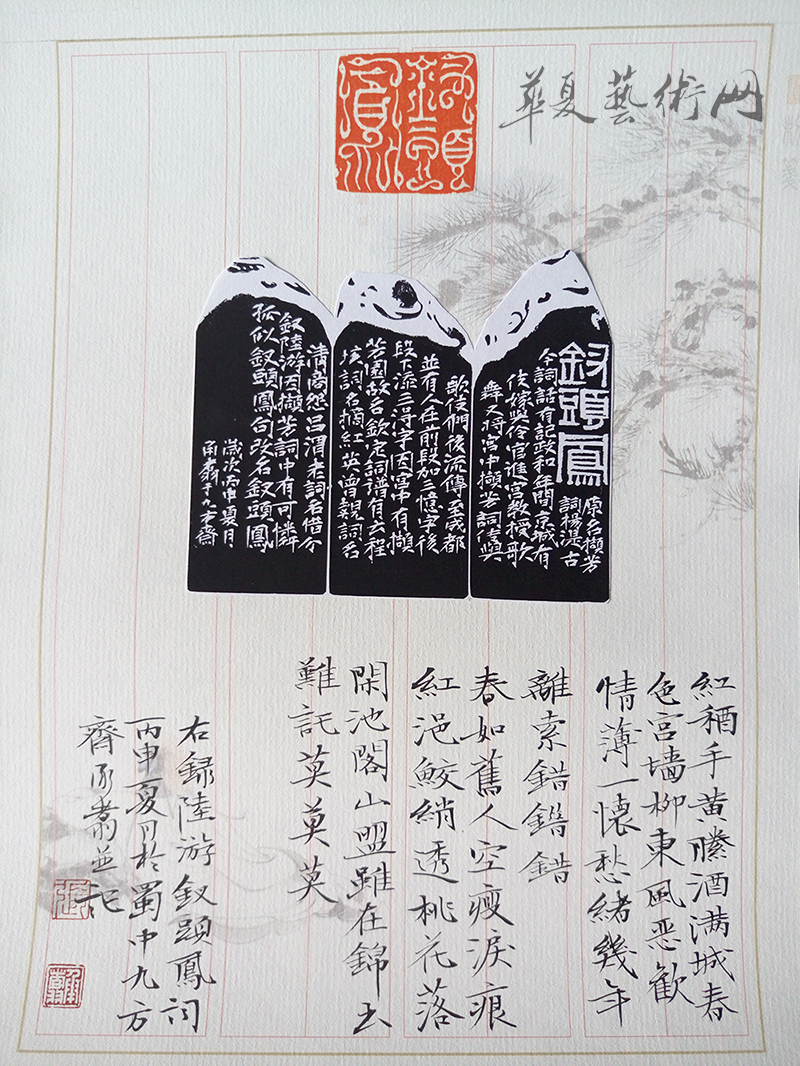 華夏藝術网
釵頭鳳
原名擷芳
詞楊湜古
今詞話有記政和年間京城有
伎嫁與伶官進宮教授歌
舞又將宮中擷芳詞傳與
歌伎們後流傳至成都
並有人在前段加三憶字後
段下添三得字因宮中有擷
芳園故名欽定詞譜有云程
垓詞名摘紅英曾覿詞名
清商怨呂渭老詞名惜分
釵陸游因擷芳詞中有可憐
孤似釵頭鳳句改名釵頭鳳
歲次丙申夏月
紅酥手黃縢酒满城春
色宮墙柳東風恶歡
情薄一懷愁緒幾年
離索錯錯錯
春如舊人空瘦淚痕
紅浥鮫綃透桃花落
閑池閣山盟雖在錦書
難託莫莫莫
右録陸游釵頭鳳詞
丙申夏月於蜀中九方
齋 並記